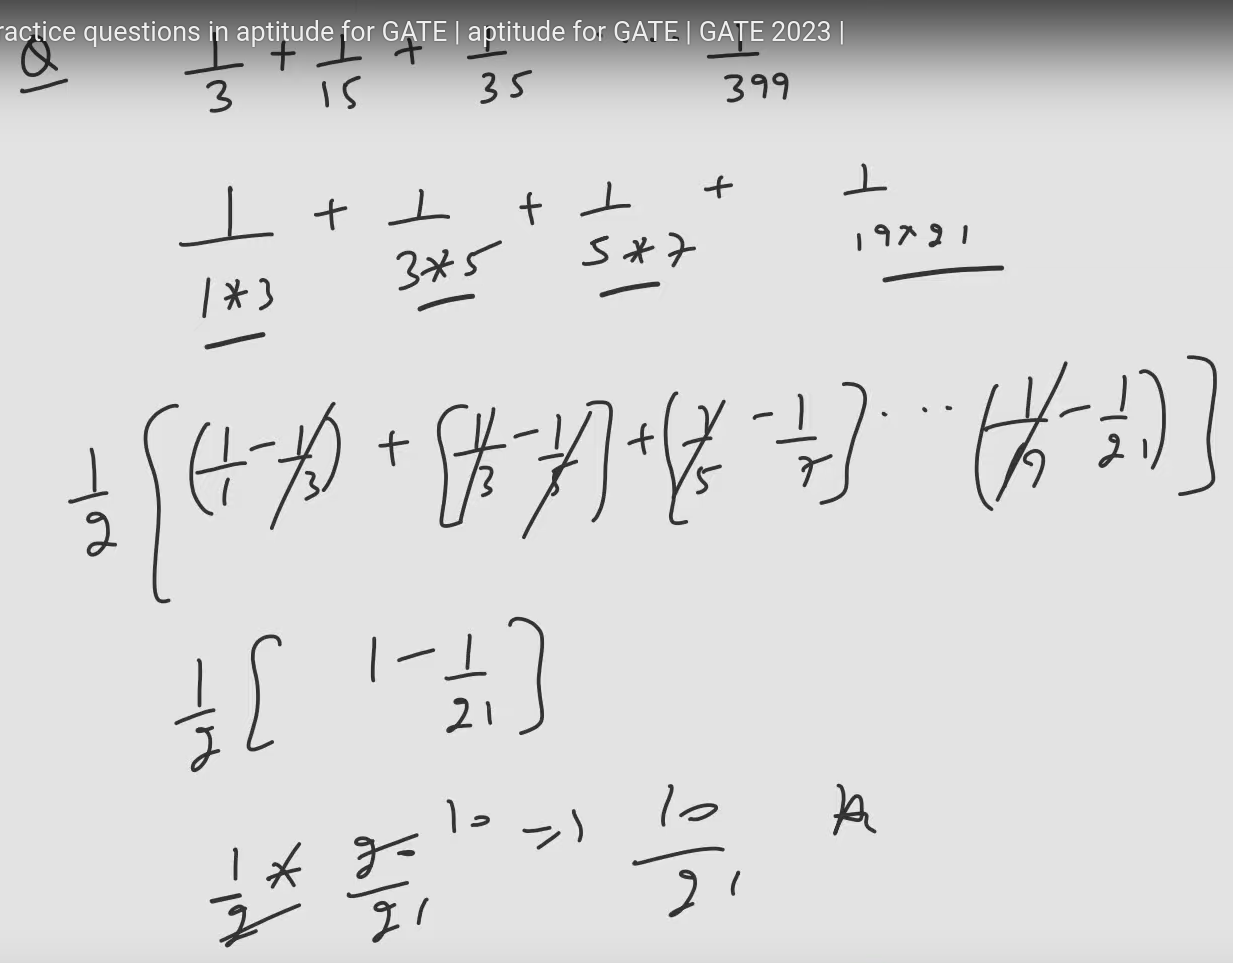 ractice questions in aptitude for GATE | aptitude for GATE | GATE 2023 |
Q 1/3 + 1/15 + 1/35 ... 1/399
1/(1*3) + 1/(3*5) + 1/(5*7) + 1/(19×21)
1/2 [(1/1 - 1/3) + [1/3 - 1/5] + (1/5 - 1/7] ... (1/19 - 1/21)]
1/2 [ 1 - 1/21 ]
1/2 * 20/21 10 => 10/21 A